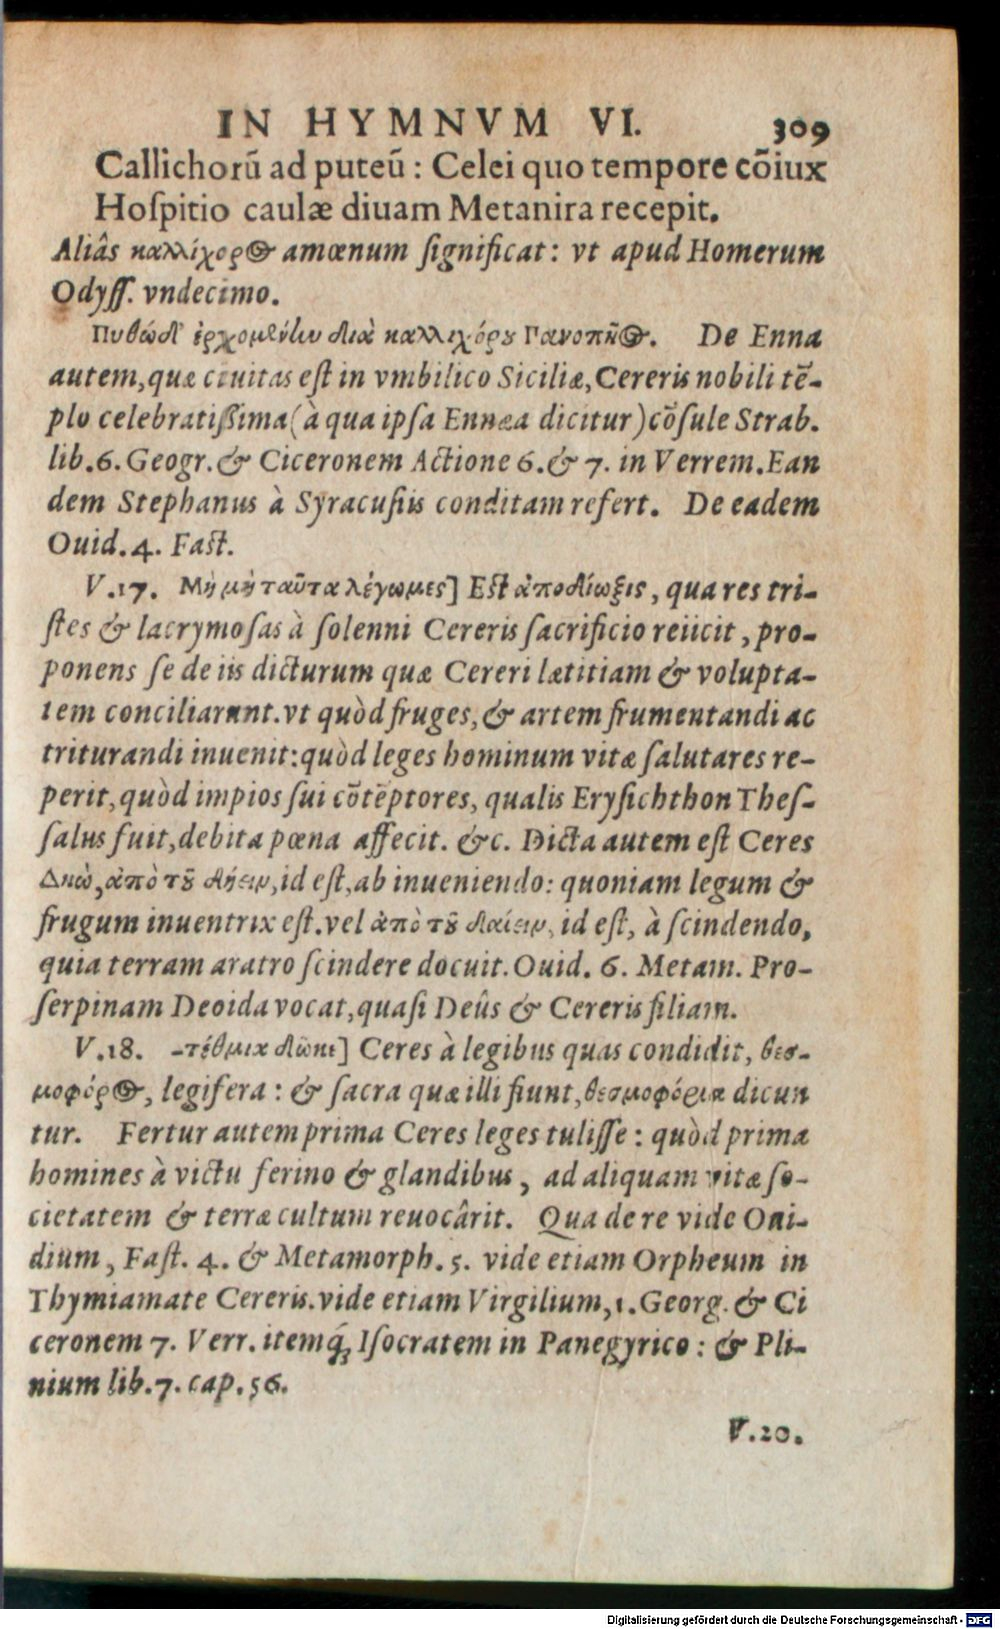 IN HYMNVM VI. 309
Callichorũ ad puteũ : Celei quo tempore cõiux
Hoſpitio caulæ diuam Metanira recepit.
Aliâs καλλίχορος amœnum ſignificat: vt apud Homerum
Odyſſ. vndecimo.
Πυθώδ' ἐρχομένην διὰ καλλιχόρου Πανοπῆος. De Enna
autem, quæ ciuitas eſt in vmbilico Siciliæ, Cereris nobili tẽ-
plo celebratiſſima (à qua ipſa Ennæa dicitur) cõſule Strab.
lib. 6. Geogr. & Ciceronem Actione 6. & 7. in Verrem. Ean
dem Stephanus à Syracuſiis conditam refert. De eadem
Ouid. 4. Faſt.
V. 17. Μὴ μὴ ταῦτα λέγωμες] Eſt ἀποδίωξις, qua res tri-
ſtes & lacrymoſas à ſolenni Cereris ſacrificio reiicit, pro-
ponens ſe de iis dicturum quæ Cereri lætitiam & volupta-
tem conciliarunt. vt quòd fruges, & artem frumentandi ac
triturandi inuenit: quòd leges hominum vitæ ſalutares re-
perit, quòd impios ſui cõtẽptores, qualis Eryſichthon Theſ-
ſalus fuit, debita pœna affecit. &c. Dicta autem eſt Ceres
Δηὼ, ἀπὸ τοῦ δήειν, id eſt, ab inueniendo: quoniam legum &
frugum inuentrix eſt. vel ἀπὸ τοῦ δαίειν, id eſt, à ſcindendo,
quia terram aratro ſcindere docuit. Ouid. 6. Metam. Pro-
ſerpinam Deoida vocat, quaſi Deûs & Cereris filiam.
V. 18. -τέθμια δῶκε] Ceres à legibus quas condidit, θεσ-
μοφόρος, legifera: & ſacra quæ illi fiunt, θεσμοφόρια dicun
tur. Fertur autem prima Ceres leges tuliſſe: quòd prima
homines à victu ferino & glandibus, ad aliquam vitæ ſo-
cietatem & terræ cultum reuocârit. Qua de re vide Oui-
dium, Faſt. 4. & Metamorph. 5. vide etiam Orpheum in
Thymiamate Cereris. vide etiam Virgilium, 1. Georg. & Ci
ceronem 7. Verr. itemq́; Iſocratem in Panegyrico: & Pli-
nium lib. 7. cap. 56.
V. 20.
Digitalisierung gefördert durch die Deutsche Forschungsgemeinschaft - DFG